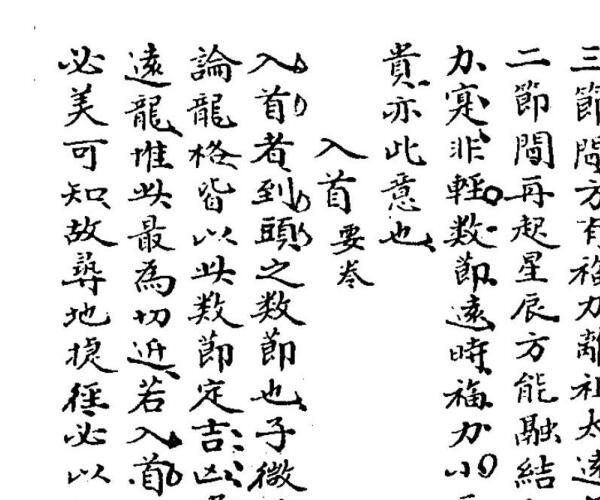 三節間方有福力離祖太遠
二節間再起星辰方能融結
力寔非輕数節遠時福力小
貴亦此意也
入首 要卷
入首者到頭之数節也子微
論龍格皆以此数節定吉凶
遠龍惟此最為切近若入首
必美可知故尋地捷徑必以